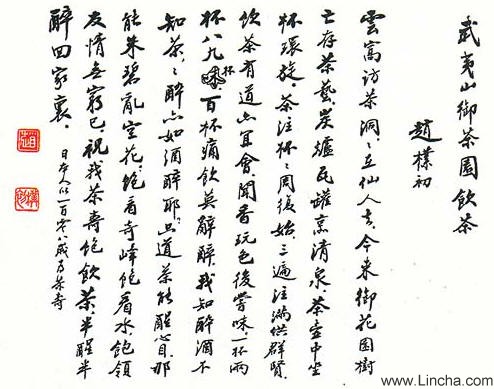 武夷山御茶園飲茶
趙樸初
雲窩访茶洞〻在仙人去今来御茶园樹
亡存茶藝炭爐瓦罐烹清泉茶壺中坐
杯環旋茶注杯〻周復始三遍注满供群賢
饮茶有道亦宜會聞香玩色後嘗味一杯兩
杯八九杯百杯痛飲莫辭醉我知醉酒不
知茶〻醉亦如酒醉耶只道茶能醒心目那
能朱碧亂空花飽看奇峰飽看水飽領
友情无窮已祝我茶壽飽飲茶半醒半
醉回家裏
日本人以一百零八歲为茶壽
www.Lincha.com